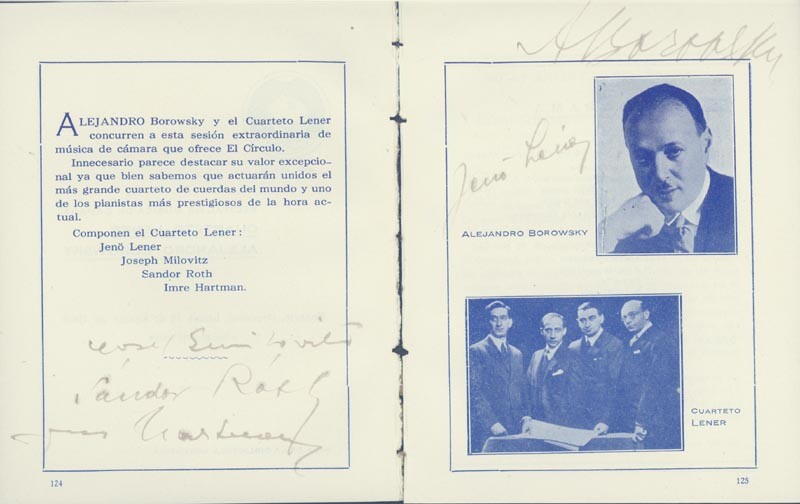 ALEJANDRO Borowsky y el Cuarteto Lener
concurren a esta sesión extraordinaria de
música de cámara que ofrece El Círculo.
Innecesario parece destacar su valor excepcio-
nal ya que bien sabemos que actuarán unidos el
más grande cuarteto de cuerdas del mundo y uno
de los pianistas más prestigiosos de la hora ac-
tual.
Componen el Cuarteto Lener:
Jenö Lener
Joseph Milovitz
Sandor Roth
Imre Hartman.
Sándor Róth
124
ABorowsky
Jenö Léner
ALEJANDRO BOROWSKY
CUARTETO
LENER
125